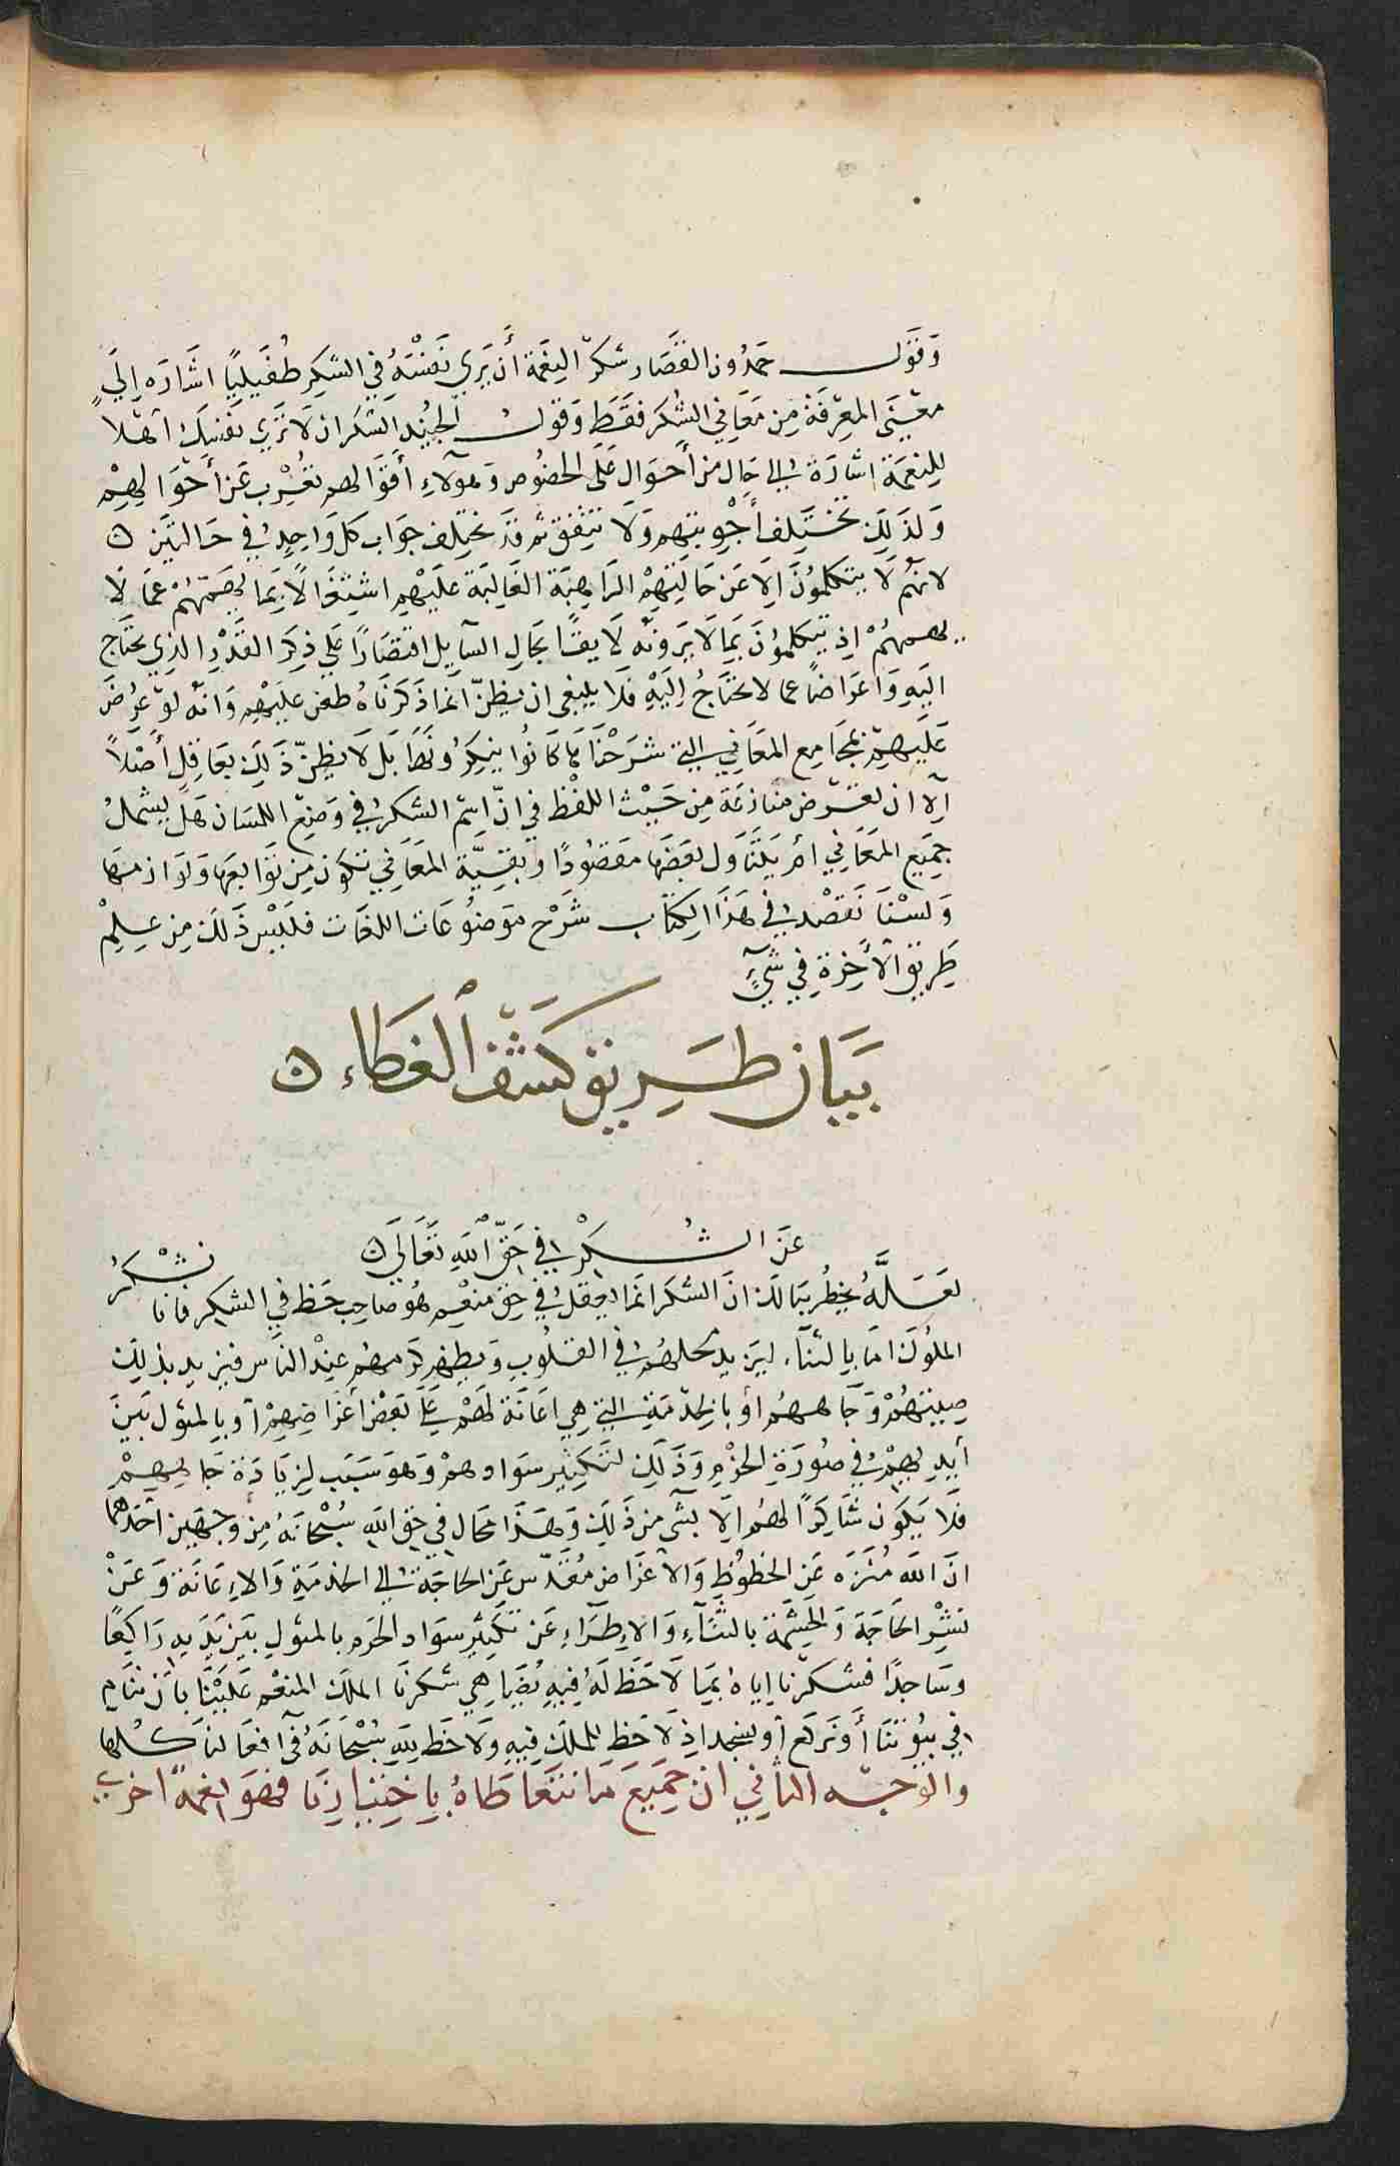 وَقَوْل حَمدُون القصَار شكرّ النِعَمة أَن يَرَي نَفْسَهُ فِي الشكِر طُفَيليًا اشَارَه اِلَي
معْنَى المعِرْفَة مِن مَعَاني الشُكرَ فقَط وَقول الجُنيد الشكرَ ان لاَ تَرَي نَفسَك اَهْلاً
للِنعمَة اشارَة الي حَال من أحوَال عَلى الخصُوص وَهولاَءِ أقوَالهم تعُرْب عَن أحوَالهِمْ
وَلذَلِكَ تختَلِف أجْوِبتهم وَلاَ تتفق ثم قدَ يختلف جوَاب كل وَاحِدٍ في حَالتَين ه
لانهُم لاَ يتكلمُونَ اِلاَ عَن حَالَتهِمْ الرَاهِنَة الغَالبَة علَيْهِم اشتِغَالاً بمَا يُهمّهُمْ عمَا لاَ
يهمهُمْ اذ يتكلمُونَ بمَا لاَ يرَونَه لاَيقًا بحَالِ السآيل اقتصَارًا عَلي ذِكرَ القَدْرِ الذِي يحتَاج
الَيهِ وَاعرَاضًا عما لا يحتَاجُ اِليَهِ فَلا ينبغى ان يظنّ انما ذَكرَنَاهُ طَعن علَيْهِم وَانَّه لوَ عُرضَ
عَلَيهِمّ بجَامِع المعَاني التي شرَحْنَاهَا كَانُوا ينكِرُونَها بَل لاَ يظنّ ذَلِكَ بعَاقِلٍ أصْلاً
اِلاَ ان تعْرض منازعَة مِن حَيْث اللفظْ في انّ اِسْم الشكرِ في وَضِع اللسَان هَل يشملُ
جمِيَع المعَاني ام يَتنَاوَل بعَضهَا مقصُودًا وبَقِيّة المعَاني تكوُن مِن تَوَابعهَا وَلوَازمهَا
وَلسْنَا نَقصْدُ في هَذَا الكِتاب شَرْح موَضوُعَات اللغَات فليَسْ ذَلَكَ مِن عِلِمْ
طَرِيق الآخِرَةِ فِي شَيءٍ
بَيَان طَرِيق كَشْف اْلغَطَاء ه
عَن الشُكْر في حَقّ اْللهِ تَعَالَي ه
لعَلَّهُ يخطُر ببَالكَ انَ الشكرَ انمَا يعقلُ في حق منعِم هُو صَاحِب حَظ في الشكِر فانا نشْكرُ
الملُوكَ امَا بالثنآء ليَزيدَ محلهُمْ في القلُوبِ وَيظهر كرَمهُم عِندْ الناَس فيَزيد بذلِكَ
صِيتهُمْ وَجَاههُم أو بالخِدْمَةِ التي هِي اعَانَة لهَمْ علَي بَعْض أغَرَاضِهِمْ أو بالمثول بَينَ
أيديِهِمْ في صُورَةِ الخَدْمِ وَذَلِكَ تَكثِير سَوَادهمْ وَهوَ سَبَب لزِيَادَة جَاههِمْ
فَلاَ يَكوُن شَاكرًا لهُم اِلاّ بشَي من ذَلِكَ وَهَذَا محَال في حق الله سُبْحَانَهُ مِن وَجهَين احَدهمَا
انَ الله مُنَزَه عَن الحظوُظِ وَالاَغرَاض مُقَدّس عَن الحَاجَة الي الخدمَةِ وَالاِعَانَة وَعَنْ
نَشْرِ الحَاجَة وَالحِشْمَة بالثنَآءِ وَالاِطرَآءِ عَن تَكثِير سوَاد الخدم بالمثولِ بَين يَدَيهِ رَاكعًا
وسَاجدًا فشكرّنا اياه بمَا لاَ حَظ لَهُ فيهِ يُضَاهِي شكرَنَا الملكَ المنعم علَيْنَا بأن ننَام
في بيُوتنَا أو نَركَع أو يسجد اذِ لاَ حَظ للمَلكَ فيه وَلا حَظ للهِ سُبْحَانَهُ في افعَالنَا كُلها
والوَجْه الثاني ان جَمِيَع مَا نتَعَاطَاهُ باِختِيَارِنَا فهوَ نِعمَة اخري